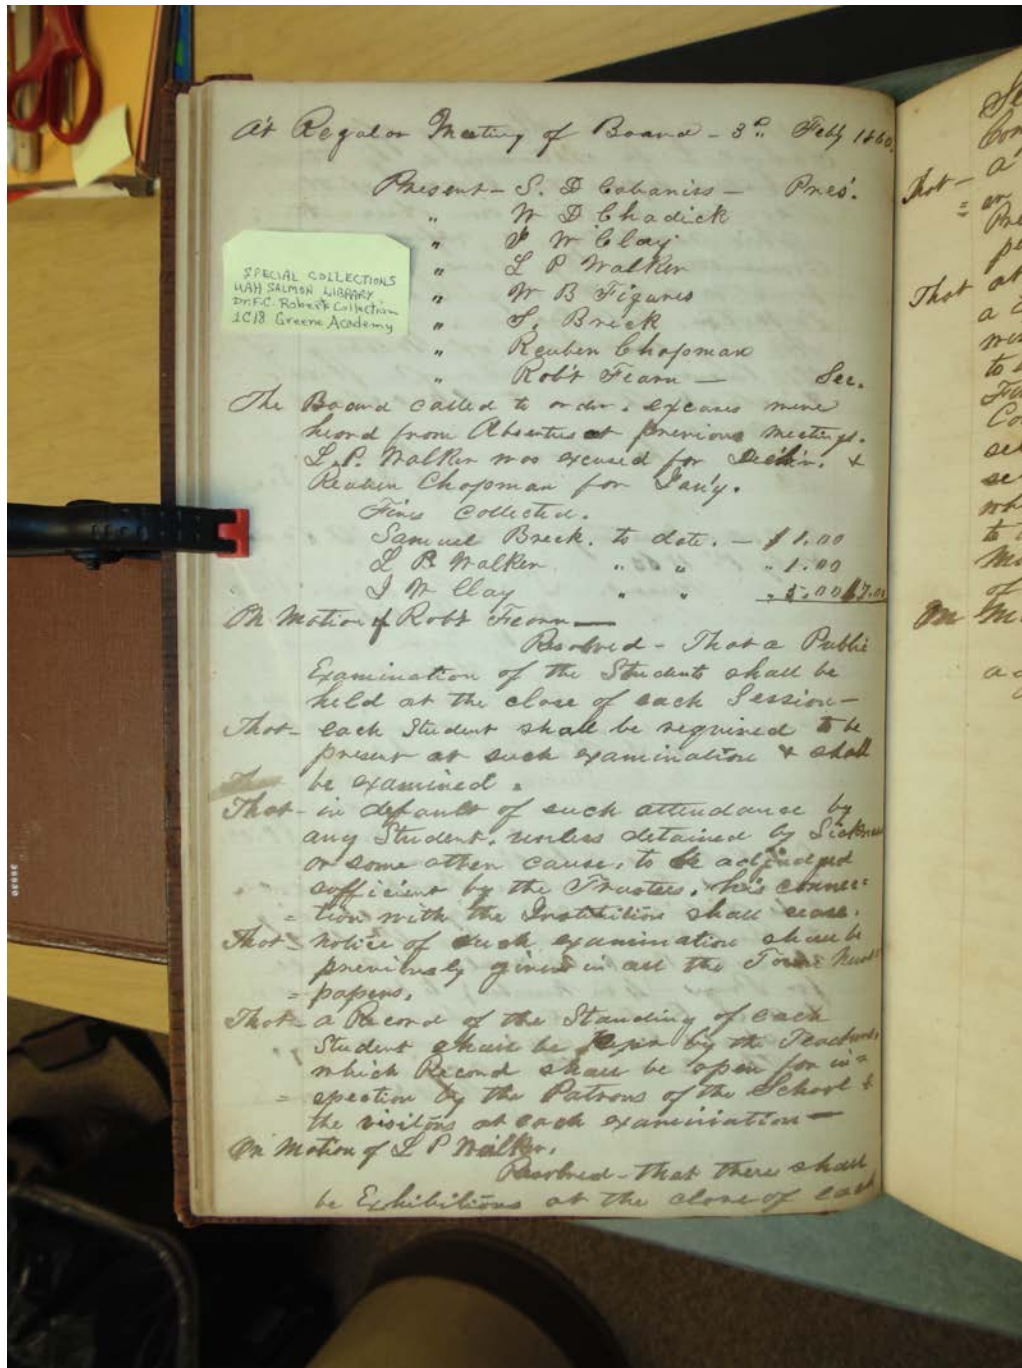 At Regular Meeting of Board - 3d Feby 1860.
Present - S. D Cabaniss - Pres'.
" W D Chadick
" J W Clay
" L P Walker
" W B Figures
" S. Breck
" Reuben Chapman
" Rob't Fearn - Sec.
SPECIAL COLLECTIONS
UAH SALMON LIBRARY
Dr. F.C. Roberts Collection
1C18 Greene Academy
The Board called to order. excuses were
heard from Absentees at previous meetings.
L. P. Walker was excused for &
Reuben Chapman for Jan'y.
Fines Collected.
Samuel Breck. to date. - $ 1.00
L P Walker " " " 1.00
J W Clay " " " 5.00 $7.00
On Motion of Rob't Fearn -
Resolved - That a Public
Examination of the Students shall be
held at the close of each Session -
That - each Student shall be required to be
present at such examination & shall
be examined.
That - in default of such attendance by
any Student, unless detained by Sickness
or some other cause, to be adjudged
sufficient by the Trustees, his connec=
= tion with the Institution shall cease.
That - notice of such examination shall be
previously given in all the Town News=
= papers.
That - a Record of the Standing of each
Student shall be kept by the Teachers,
which Record shall be open for in=
= spection by the Patrons of the School &
the visitors at each examination -
On Motion of L P Walker.
Resolved - that there shall
be Exhibitions at the close of each
That -
=
That at
to
of
On